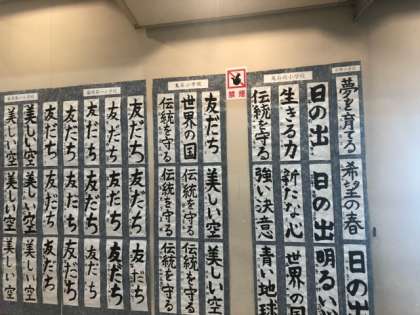 小学校
夢を育てる
希望の春
日の出
小学校
日の出
日の出
明るい心
生きる力
新たな心
世界の国
伝統を守る
強い決意
青い地球
禁煙
小学校
友だち
美しい空
美しい空
世界の国
伝統を守る
伝統を守る
伝統を守る
伝統を守る
伝統を守る
小学校
友だち
友だち
友だち
友だち
友だち
友だち
友だち
友だち
友だち
友だち
友だち
友だち
友だち
美しい空
美しい空
小学校
美しい空
美しい空
美しい空
美しい空
美しい空
美しい空